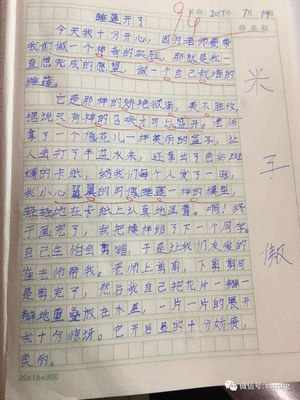 睡莲开了
94
2017年 7月 19日
今天我十分开心，因为老师要带
我们做一个神奇的实验，那就是我一
直想完成的愿望，做一个自己栽培的
睡莲。
它是那样的娇艳欲滴，美不胜收
据说只有神的
拿了一个像花儿一样美丽的盆子，让
人去打了半盆水来，还拿出了色彩斑
斓的卡纸，给我们每个人发了一张，
我小心翼翼的对像睡莲一样的模型，
轻轻地在卡纸上认真地画着。啊！终
于画完了，我把模样给了下一个同学，
自己生怕会剪错，于是让我们友爱的
老师帮我。老师上剪剪，下剪剪可
是剪完了，然后我自己把花片一瓣一
瓣地重叠放在水里，一片一片的展开
去十分惊讶。它开的显的十分娇俏，
美丽。
米
王
傲
20×15=300
微信号：